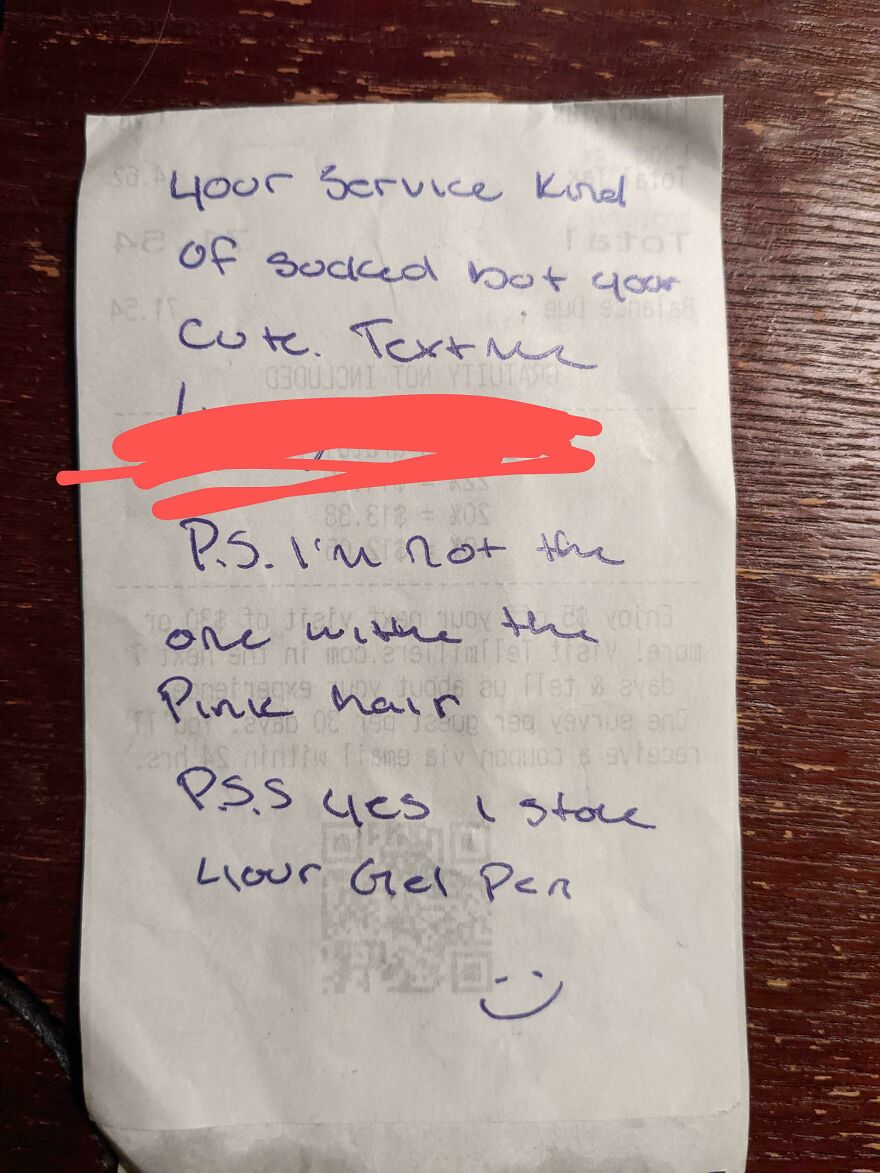 your Service Kind
of sucked but your
Cute. Text me
P.S. I'm not the
one withe the
Pink hair
P.S.S yes I stole
your Gel Pen
Total
71.54
Balance Due
71.54
GRATUITY NOT INCLUDED
20% = $13.38
Enjoy $5 your next visit of $30 or
more! Visit Tellmillers.com in the next 7
days & tell us about your experience.
One survey per guest per 30 days. You'll
receive a coupon via email within 24 hrs.